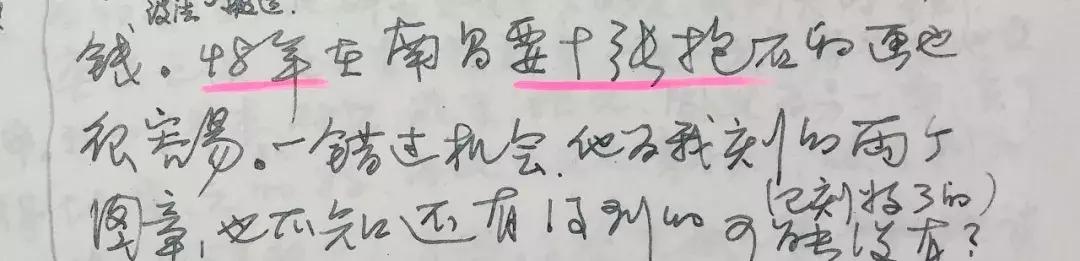 设法
钱。48年在南昌要十张抱石的画也
很容易。一错过机会.他为我刻的两个
(已刻好了的)
图章,也不知还有没有?